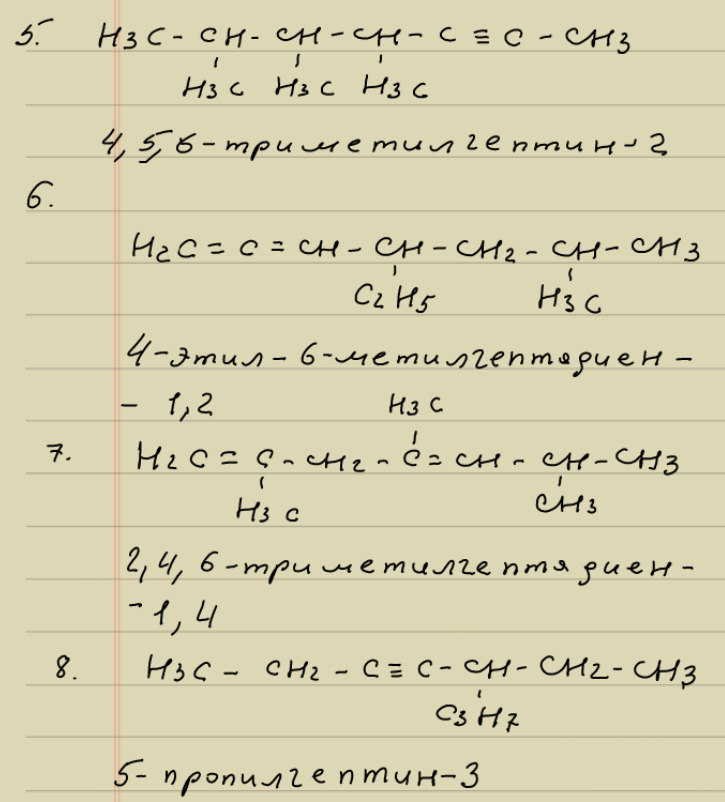 5. H3C - CH - CH - CH - C ≡ C - CH3
H3C H3C H3C
4, 5, 6-триметилгептин-2
6.
H2C = C = CH - CH - CH2 - CH - CH3
C2H5 H3C
4-этил-6-метилгептадиен-
- 1,2
H3C
7. H2C = C - CH2 - C = CH - CH - CH3
H3C CH3
2, 4, 6-триметилгептадиен-
- 1, 4
8. H3C - CH2 - C ≡ C - CH - CH2 - CH3
C3H7
5-пропилгептин-3